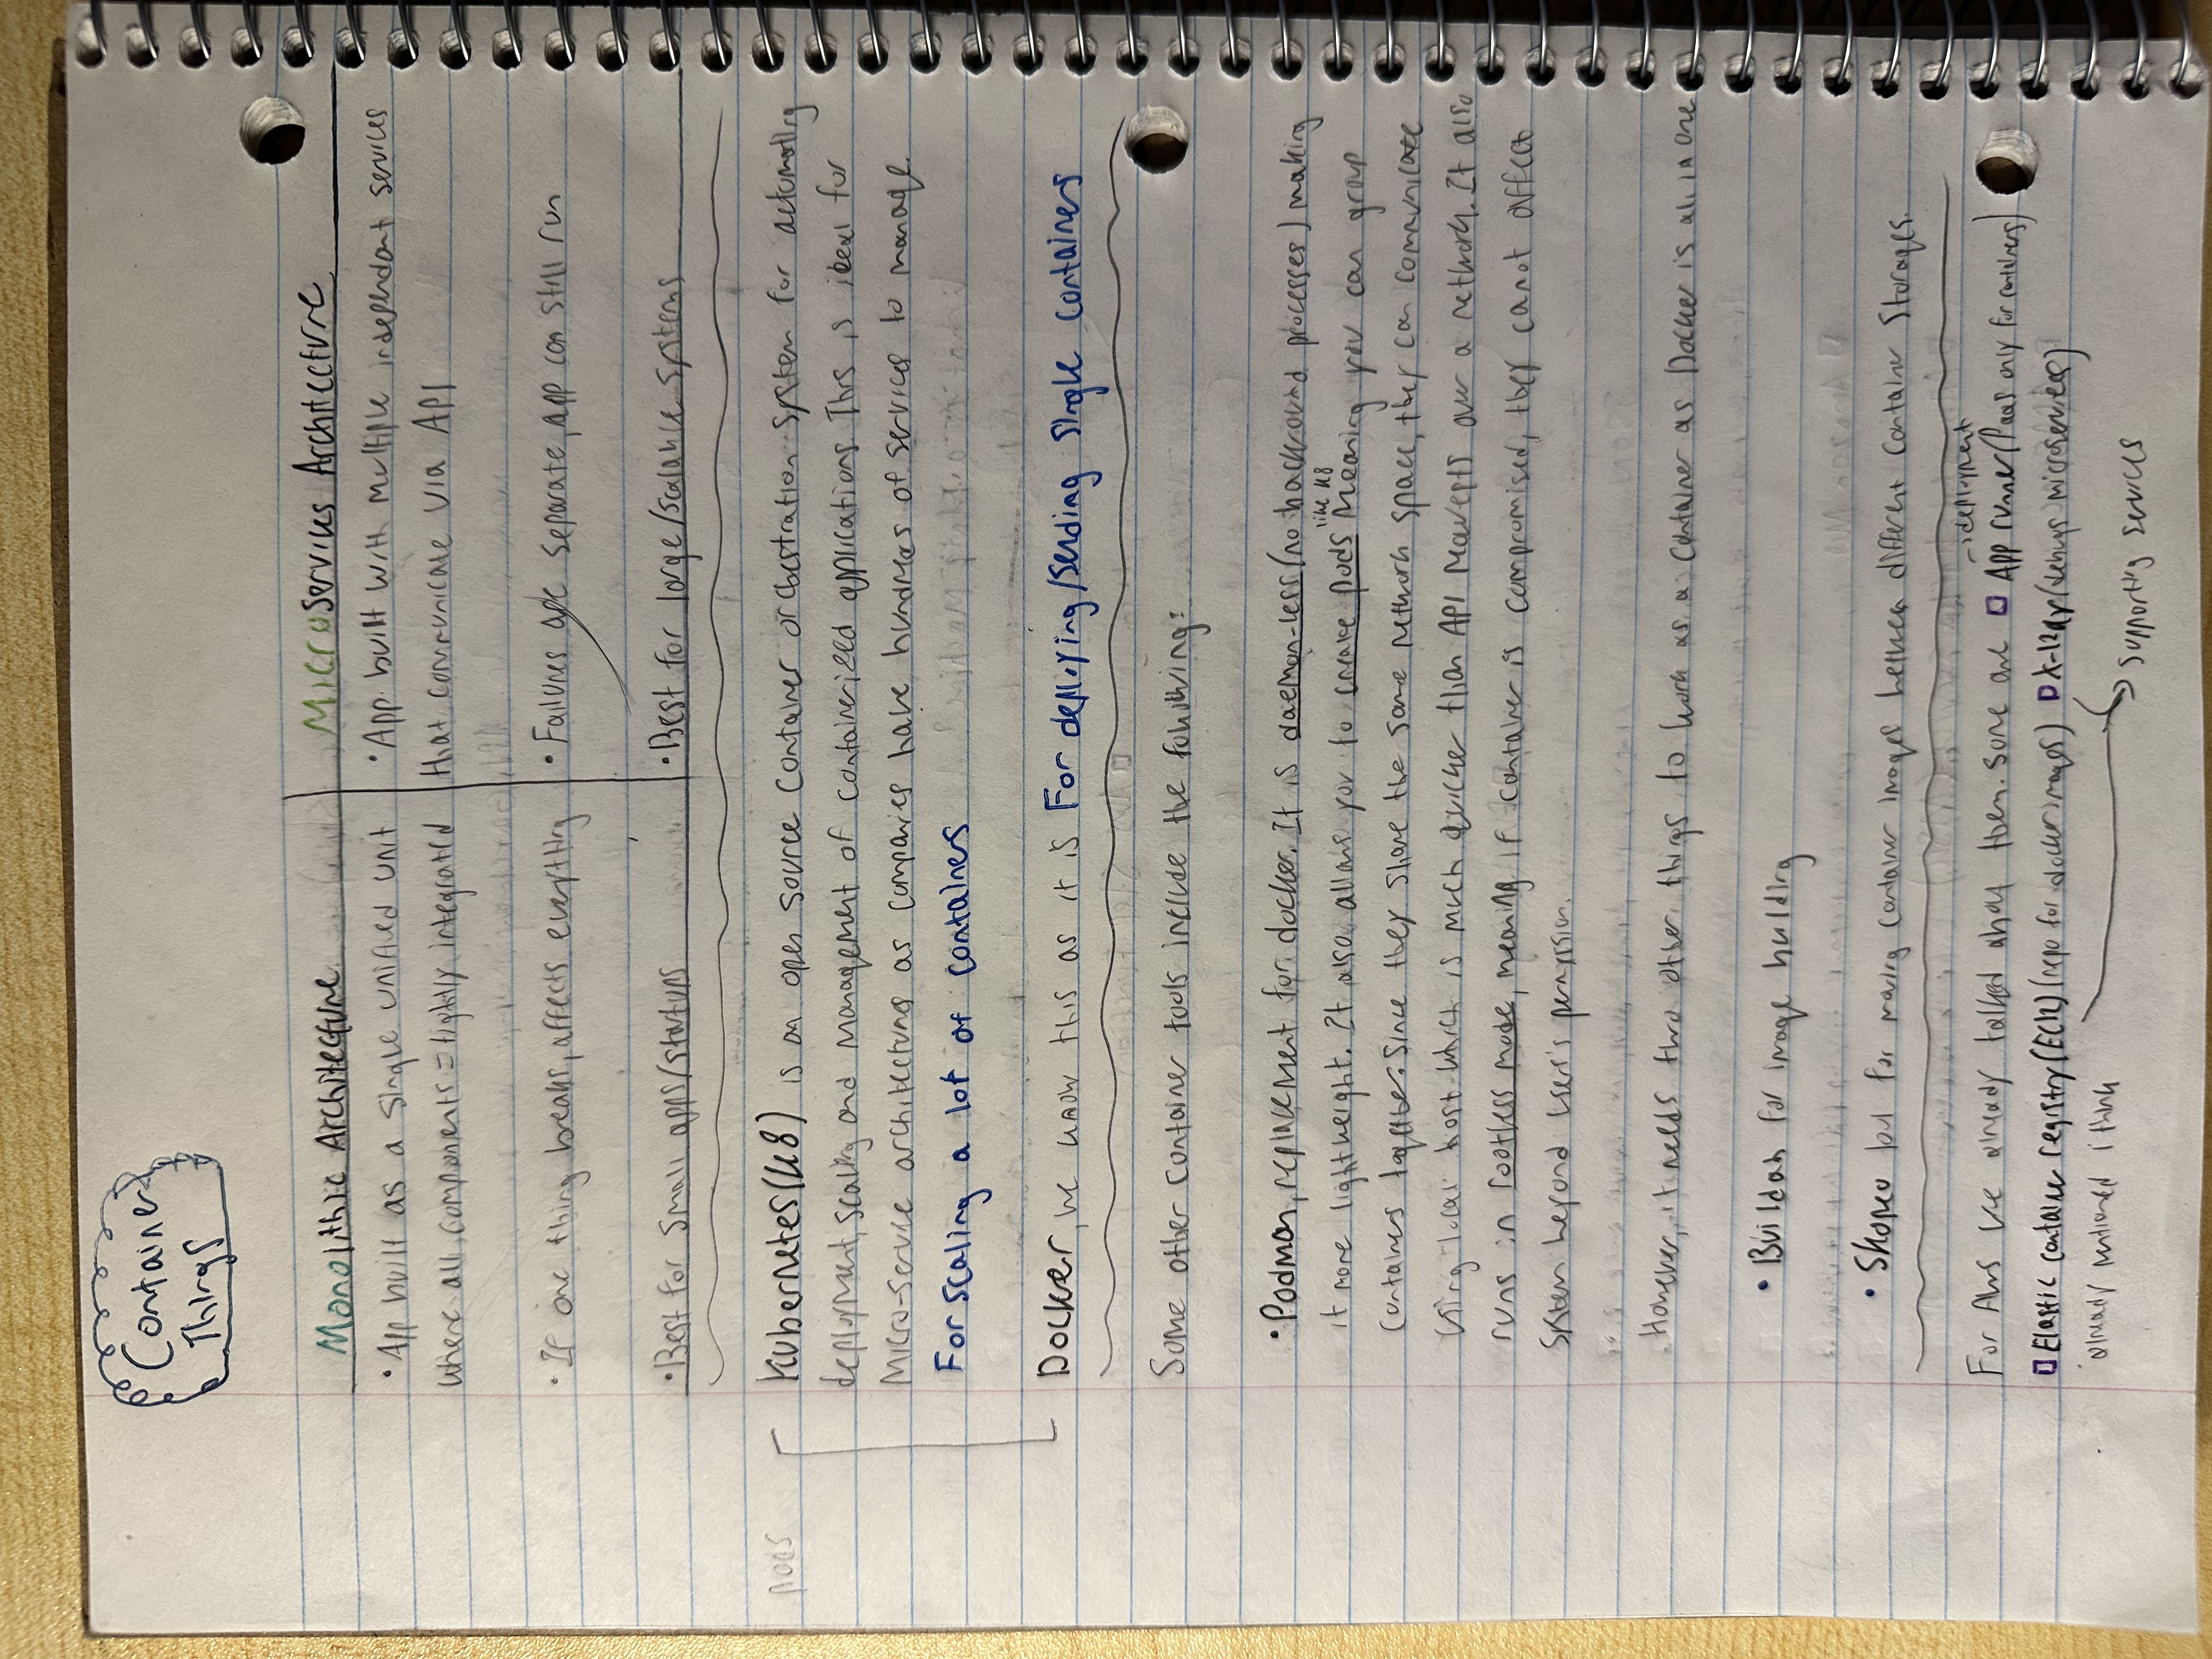 Container
Things
Monolithic Architecture
• App built as a single unified unit
where all components = tightly integrated
• If one thing breaks, affects everything
• Best for small apps/startups
Microservices Architecture
• App built with multiple independant services
that communicate via API
• Failures are separate, app can still run
• Best for large/scalable systems
pods
Kubernetes(K8) is an open source container orchestration system for automating
deployment, scaling and management of containerized applications. This is ideal for
Micro-service architectures as companies have hundreds of services to manage.
For scaling a lot of containers
Docker, we know this as it is For deploying/sending single containers
Some other container tools include the following:
• Podman, replacement for docker. It is daemon-less (no background processes) making
like K8
it more lightweight. It also allows you to create pods meaning you can group
containers together. Since they share the same network space, they can communicate
using local host which is much quicker than API requests over a network. It also
runs in rootless mode, meaning if container is compromised, they canot affect
system beyond user's permission.
However, it needs two other things to work as a container as Docker is all in one
• Buildah for image building
• Skopeo tool for moving container images between different container storages.
→ deployment
For AWS we already talked about them. Some are □ App runner (PaaS only for containers)
□ Elastic container registry (ECR) (repo for docker images) □ X-Ray (debugs microservices)
already mentioned i think
supporting services